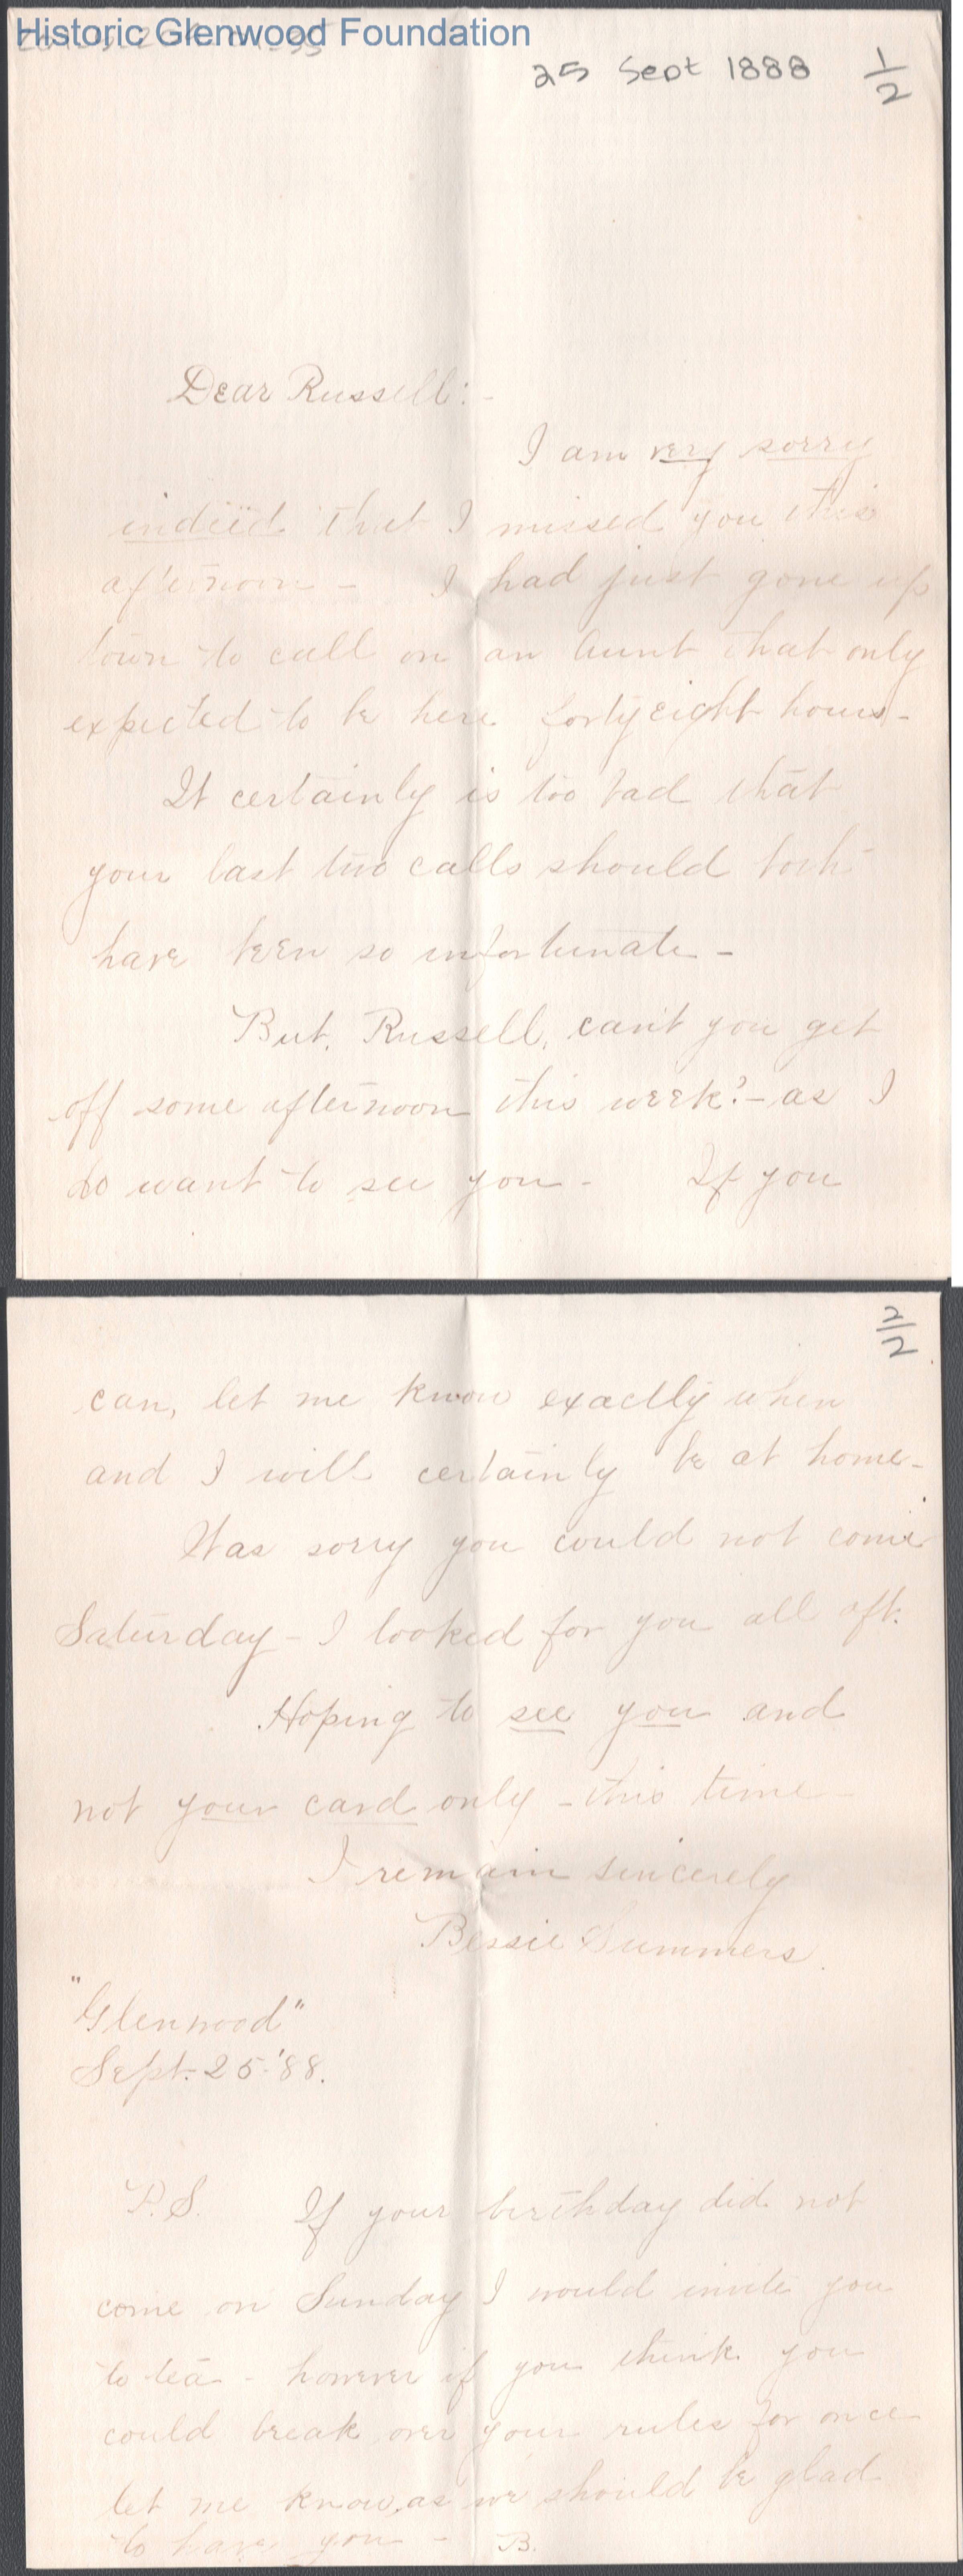 Historic Glenwood Foundation
25 Sept 1888 1/2
Dear Russell:-
I am very sorry
indeed that I missed you this
afternoon - I had just gone up
town to call on an Aunt that only
expected to be here forty eight hours -
It certainly is too bad that
your last two calls should both
have been so unfortunate -
But, Russell, can't you get
off some afternoon this week? - as I
do want to see you - If you
2/2
can, let me know exactly when
and I will certainly be at home -
Was sorry you could not come
Saturday - I looked for you all aft.
Hoping to see you and
not your card only - this time -
I remain sincerely
Bessie Summers.
"Glenwood"
Sept. 25. '88.
P.S. If your birthday did not
come on Sunday I would invite you
to tea - however if you think you
could break over your rules for once
let me know, as we should be glad
to have you - B.